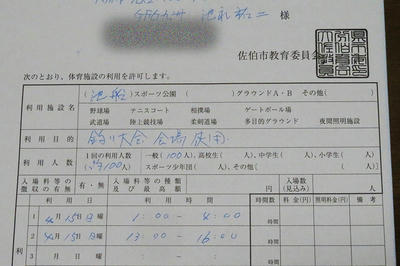 様
佐伯市教育委員会
次のとおり、体育施設の利用を許可します。
利用施設名
(池船)スポーツ公園 ( )グラウンドA・B その他( )
野球場 テニスコート 相撲場 ゲートボール場
武道場 陸上競技場 柔剣道場 多目的グラウンド 夜間照明施設
利用目的
釣り大会 会場使用
利用人数
1回の利用人数 一般(100人)、高校生( 人)、中学生( 人)、小学生( 人)
(約100人) スポーツ少年団( 人)、その他( 人)
入場料等の徴収の有無 有・無 入場料等の種類及び最高額 入場数(見込み) 人
利用日 利用時間 時間数 料金(円) 照明料金(円) 備考
1 4月15日日曜 1:00 - 4:00 時間
2 4月15日日曜 13:00 - 16:00 時間
3 月 日 曜 時間